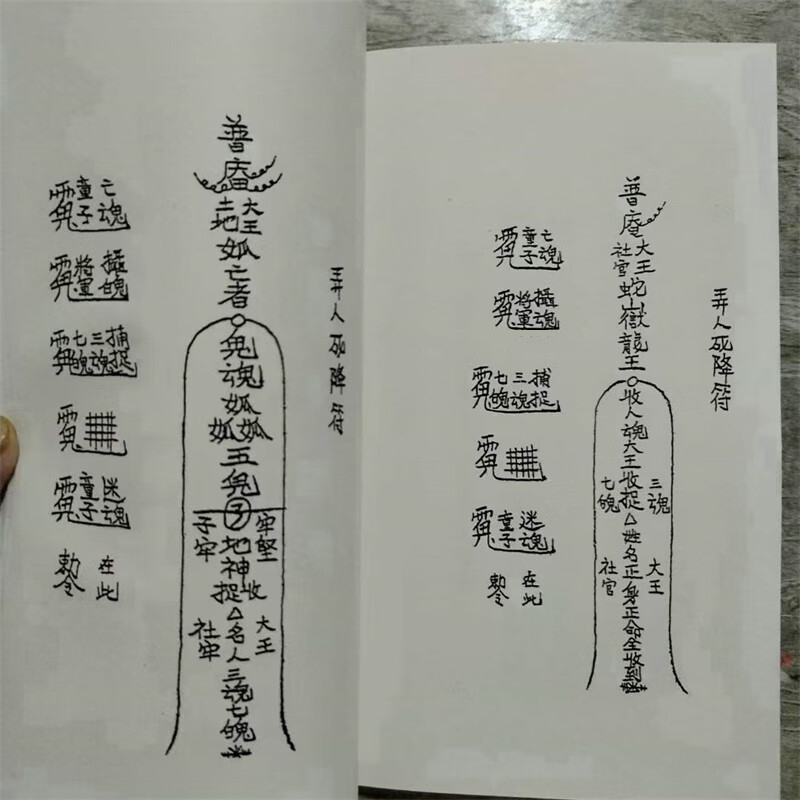 弄人死降符
普
庵
土地 大王
狐
亡者
鬼
魂
狐
狐狐
五
鬼
子牢 牢堅
地神
捉收
社牢 大王
△名人
三魂
七魄
童子 亡魂
將軍 攝魄
七魄 三魂 捕捉
童子 迷魂
勅令 在此
弄人死降符
普
庵
社官 大王
蛇
嶽
龍
王
收人魂
大王收捉
七魄 三魂
△姓名正身正命全收到
社官 大王
童子 亡魂
將軍 攝魂
七魄 三魂 捕捉
童子 迷魂
勅令 在此